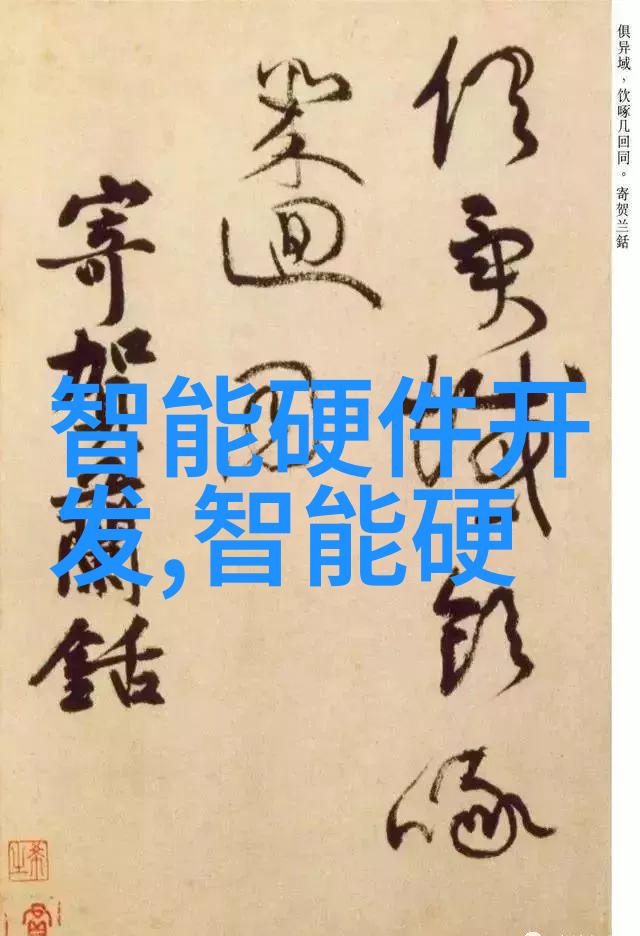 俱异域，饮啄几回同。寄贺兰銛
俱異域飲啄
幾迴同
寄賀蘭銛
智能硬件开
发,智能硬